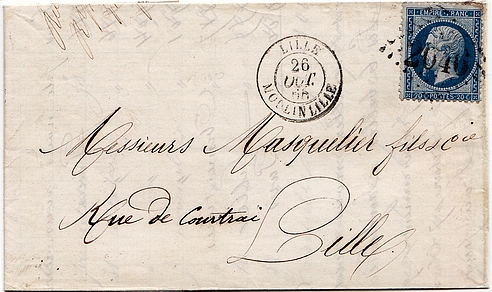 EMPIRE FRANC
2046
20 C POSTES 20 C
LILLE
26
OCT.
MOULINLILLE
Messieurs Masquelier fils & Cie
Rue de Courtrai
Lille